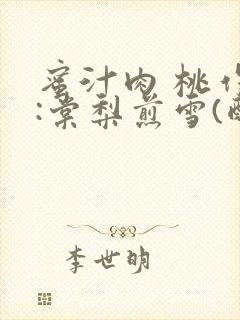 蜜汁肉桃作
:棠梨煎雪(醉
李世明